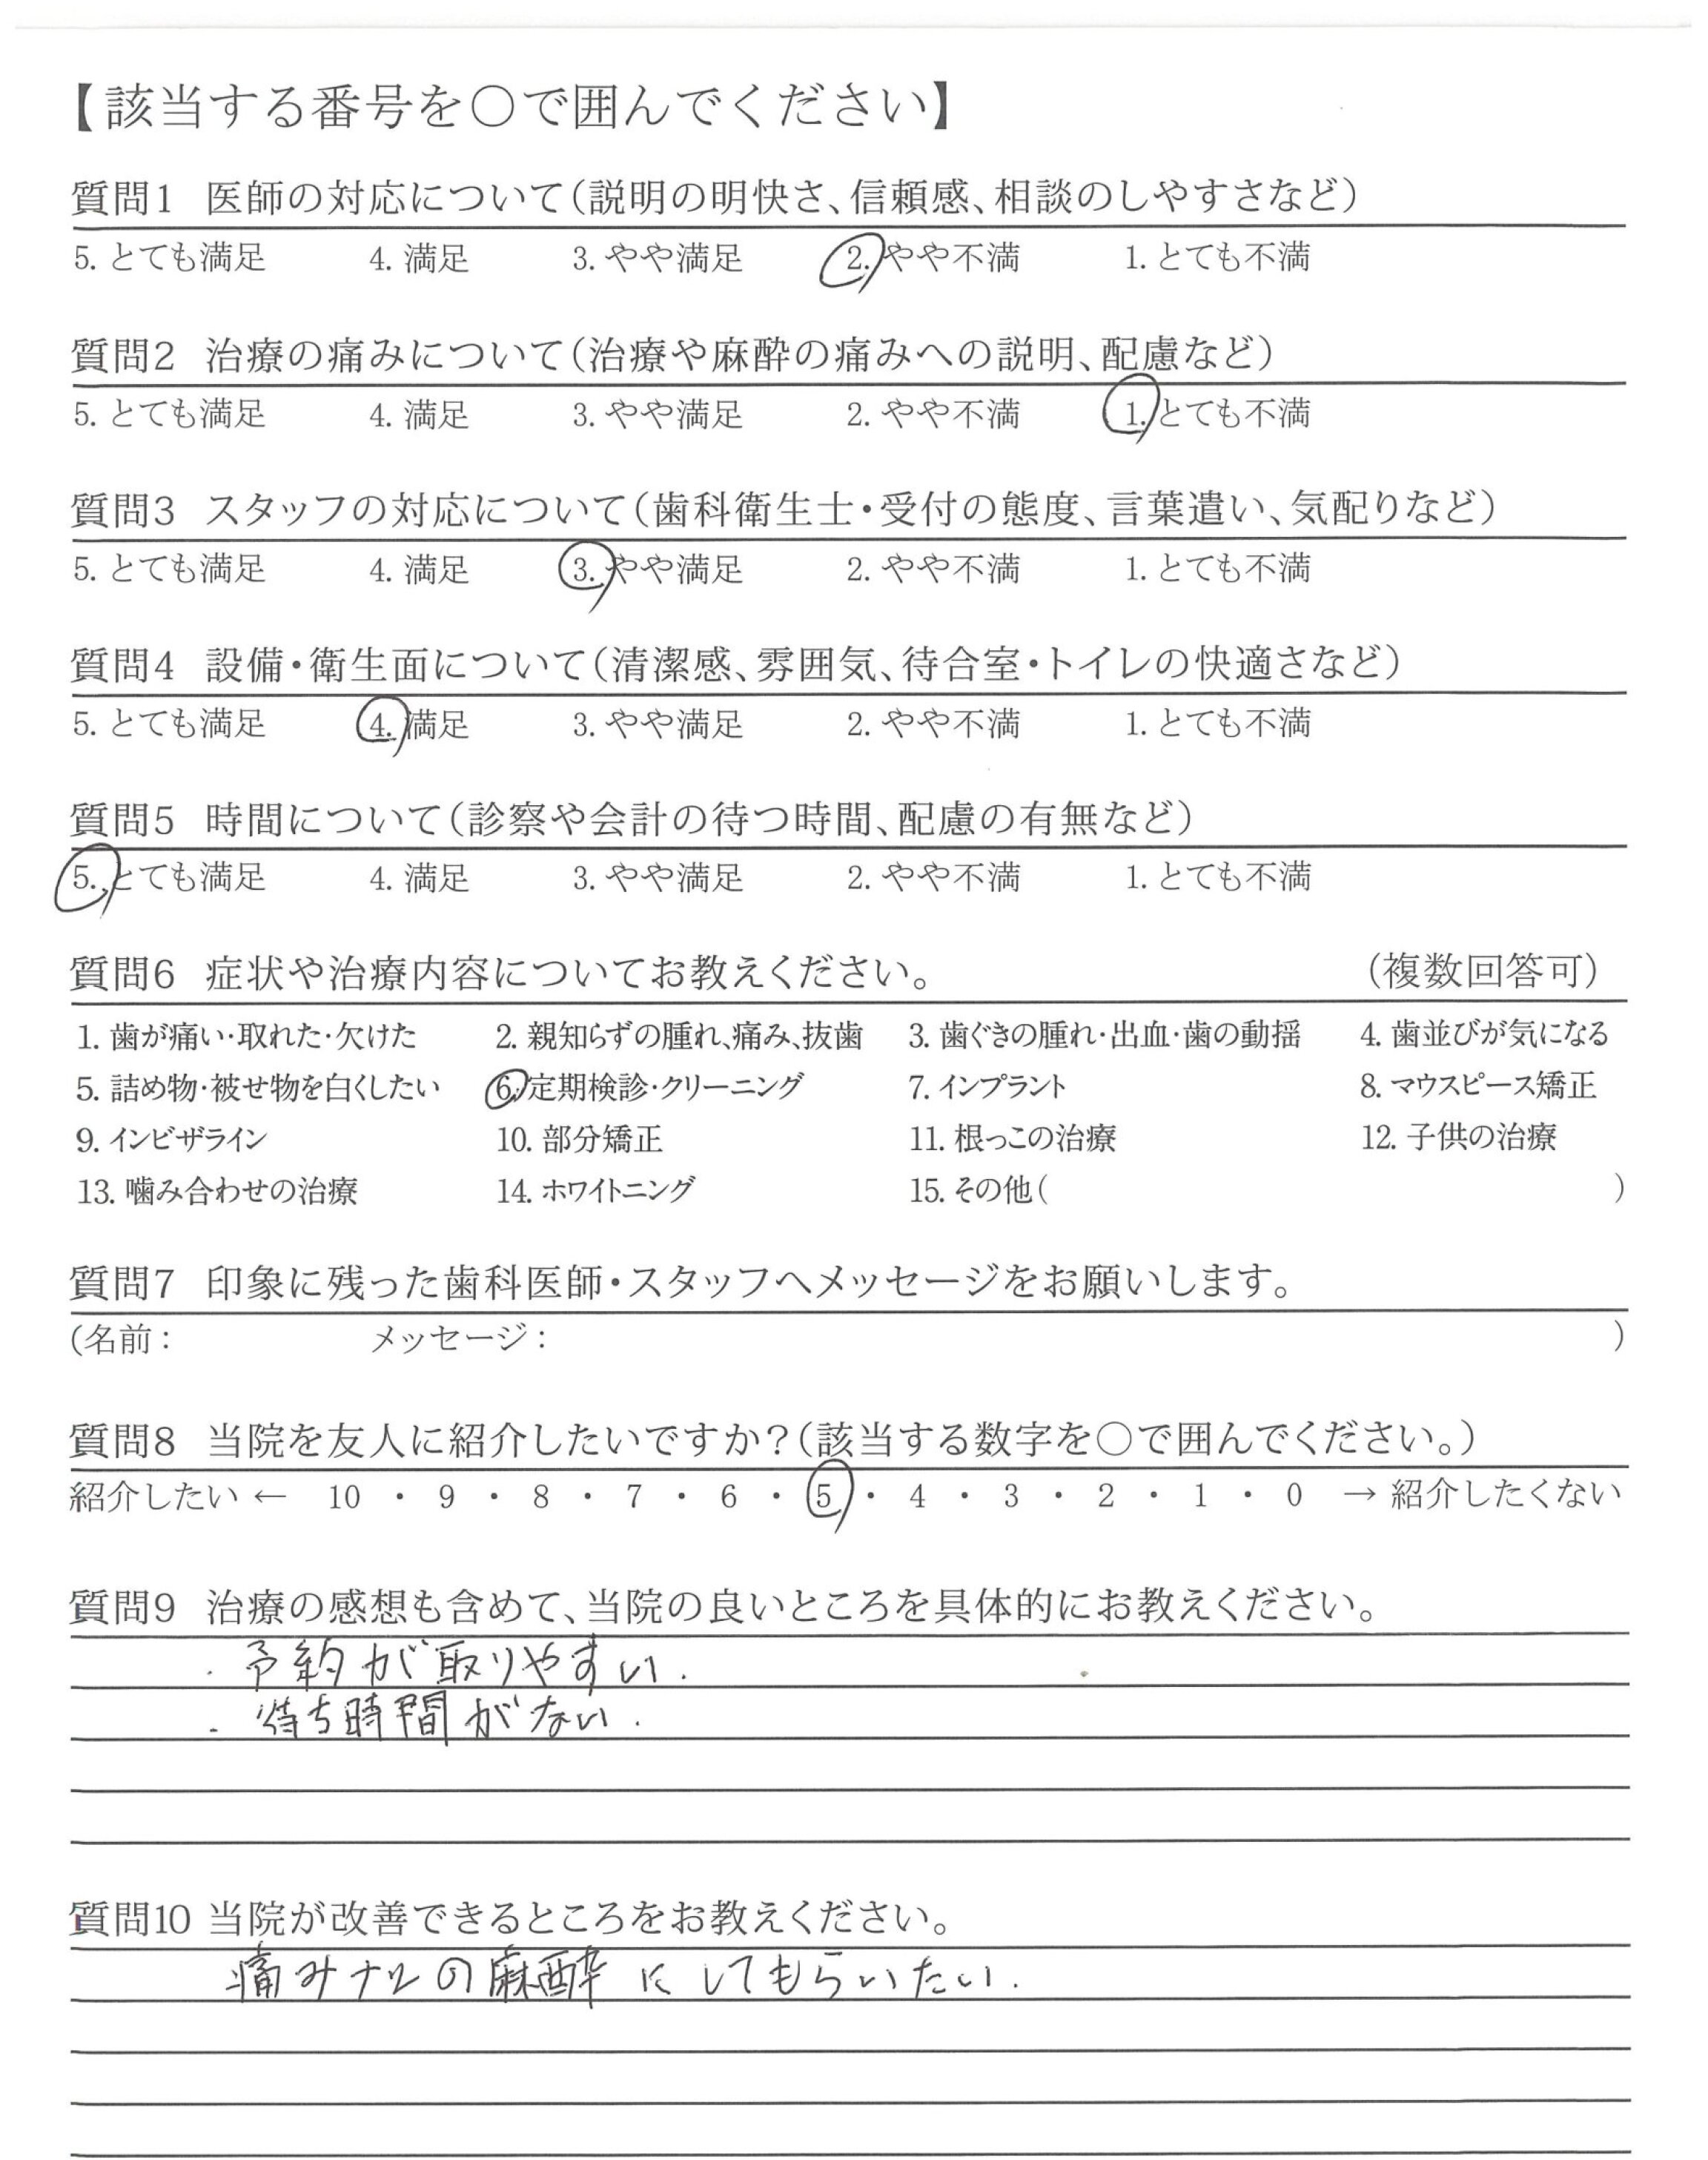 【該当する番号を○で囲んでください】
質問1 医師の対応について(説明の明快さ、信頼感、相談のしやすさなど)
5. とても満足 4. 満足 3. やや満足 2. やや不満 1. とても不満
質問2 治療の痛みについて(治療や麻酔の痛みへの説明、配慮など)
5. とても満足 4. 満足 3. やや満足 2. やや不満 1. とても不満
質問3 スタッフの対応について(歯科衛生士・受付の態度、言葉遣い、気配りなど)
5. とても満足 4. 満足 3. やや満足 2. やや不満 1. とても不満
質問4 設備・衛生面について(清潔感、雰囲気、待合室・トイレの快適さなど)
5. とても満足 4. 満足 3. やや満足 2. やや不満 1. とても不満
質問5 時間について(診察や会計の待つ時間、配慮の有無など)
5. とても満足 4. 満足 3. やや満足 2. やや不満 1. とても不満
質問6 症状や治療内容についてお教えください。 (複数回答可)
1. 歯が痛い・取れた・欠けた 2. 親知らずの腫れ、痛み、抜歯 3. 歯ぐきの腫れ・出血・歯の動揺 4. 歯並びが気になる
5. 詰め物・被せ物を白くしたい 6. 定期検診・クリーニング 7. インプラント 8. マウスピース矯正
9. インビザライン 10. 部分矯正 11. 根っこの治療 12. 子供の治療
13. 噛み合わせの治療 14. ホワイトニング 15. その他( )
質問7 印象に残った歯科医師・スタッフへメッセージをお願いします。
(名前: メッセージ: )
質問8 当院を友人に紹介したいですか?(該当する数字を○で囲んでください。)
紹介したい ← 10 ・ 9 ・ 8 ・ 7 ・ 6 ・ 5 ・ 4 ・ 3 ・ 2 ・ 1 ・ 0 → 紹介したくない
質問9 治療の感想も含めて、当院の良いところを具体的にお教えください。
・予約が取りやすい.
・待ち時間がない.
質問10 当院が改善できるところをお教えください。
痛みナシの麻酔にしてもらいたい.